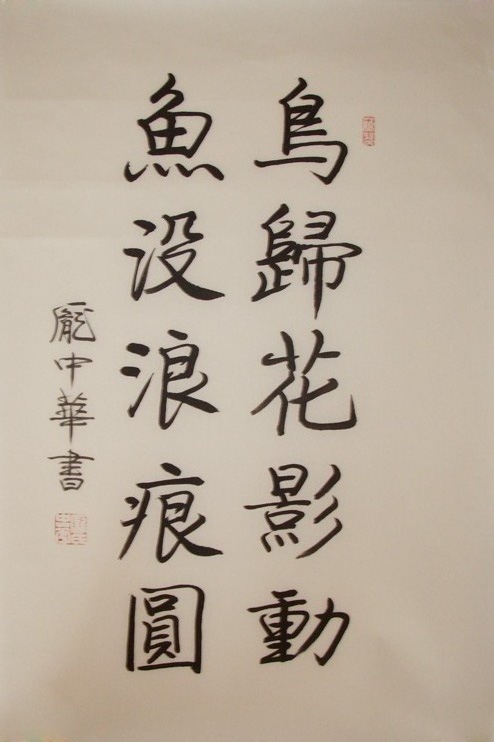 鳥歸花影動
魚没浪痕圓
龐中華書